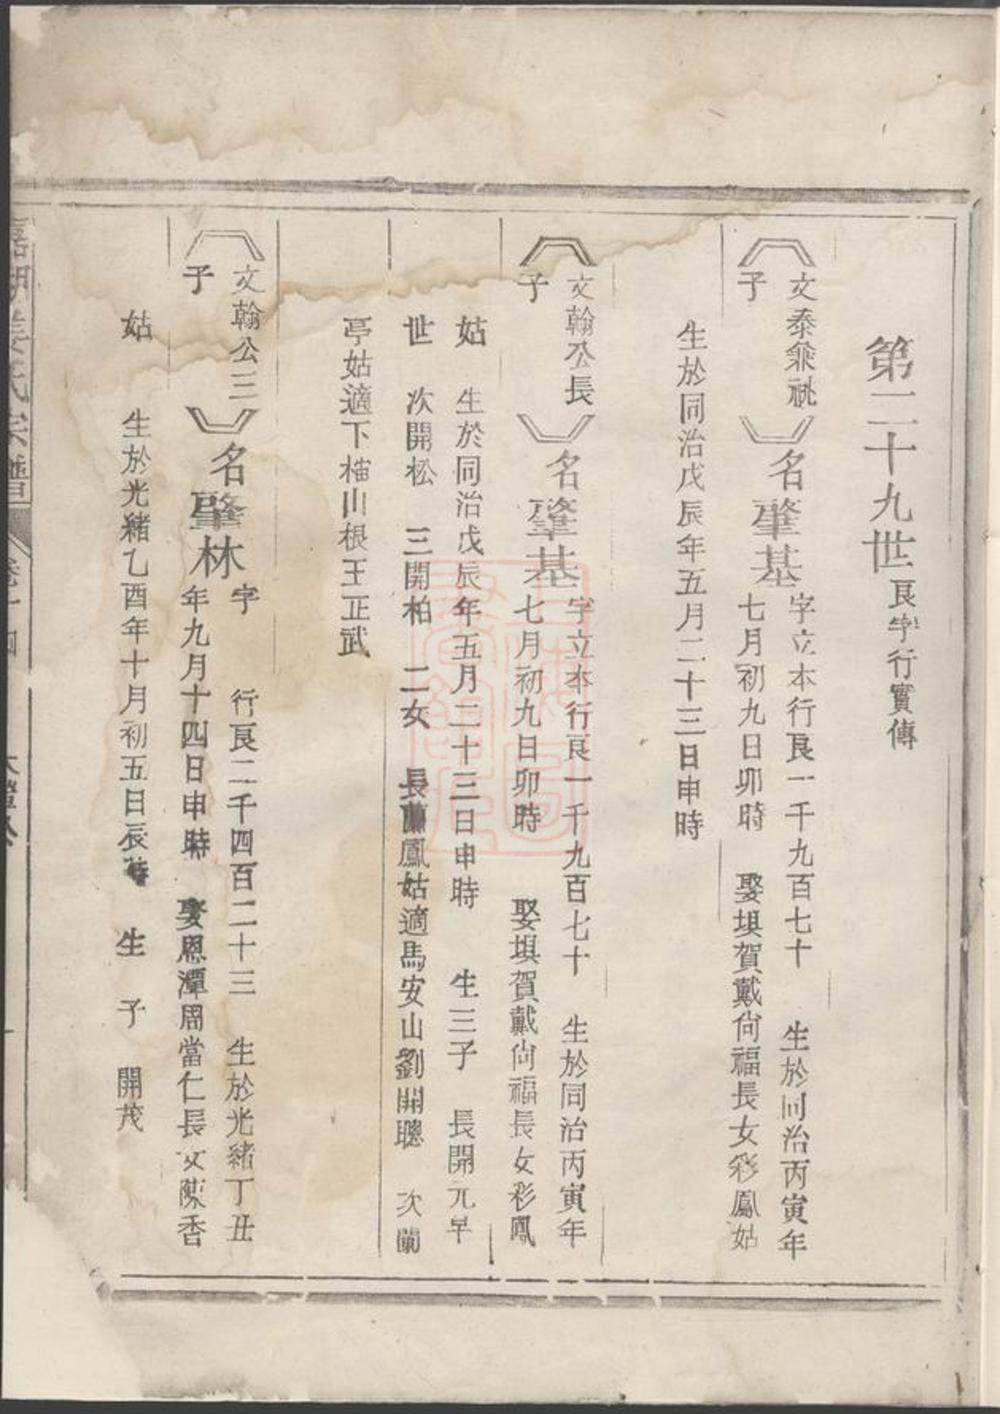 第二十九世
良字行實傳
文泰兼祧子
名肇基
字立本行良一千九百七十 生於同治丙寅年
七月初九日卯時 娶埧賀戴尙福長女彩鳳姑
生於同治戊辰年五月二十三日申時
文翰公長子
名肇基
字立本行良一千九百七十 生於同治丙寅年
七月初九日卯時 娶埧賀戴尙福長女彩鳳
姑 生於同治戊辰年五月二十三日申時 生三子 長開元早
世 次開松 三開柏 二女 長蘭鳳姑適馬安山劉開聰 次蘭
亭姑適下樁山根王正武
文翰公三子
名肇林
字 行良二千四百二十三 生於光緒丁丑
年九月十四日申時 娶恩潭周當仁長女陳香
姑 生於光緒乙酉年十月初五日辰時 生子 開茂
姜氏宗譜